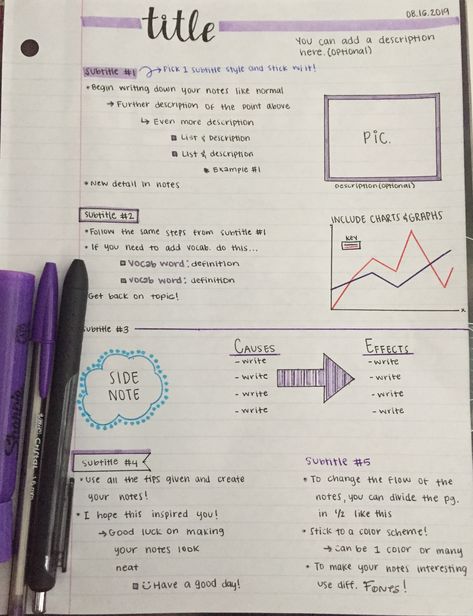 title
08.16.2019
You can add a description
here. (optional)
Subtitle #1 → Pick 1 subtitle style and stick w/ it!
• Begin writing down your notes like normal
→ Further description of the point above
↳ Even more description
List & Description
List & description
• Example #1
• New detail in notes
PIC.
Description (optional)
Subtitle #2
• Follow the same steps from subtitle #1
• If you need to add vocab. do this...
Vocab word: definition
vocab word: definition
Get back on topic!
INCLUDE CHARTS & GRAPHS
KEY
x
Subtitle #3
SIDE
NOTE
CAUSES
- write
- write
- write
- write
EFFECTS
- write
- write
- write
- write
Subtitle #4
• Use all the tips given and create
your notes!
• I hope this inspired you!
→ Good luck on making
your notes look
neat
Have a good day!
Subtitle #5
• To change the flow of the
notes, you can divide the pg.
in 1/2 like this
• Stick to a color scheme!
→ can be 1 color or many
• To make your notes interesting
use diff. FONTS!
Sharpie